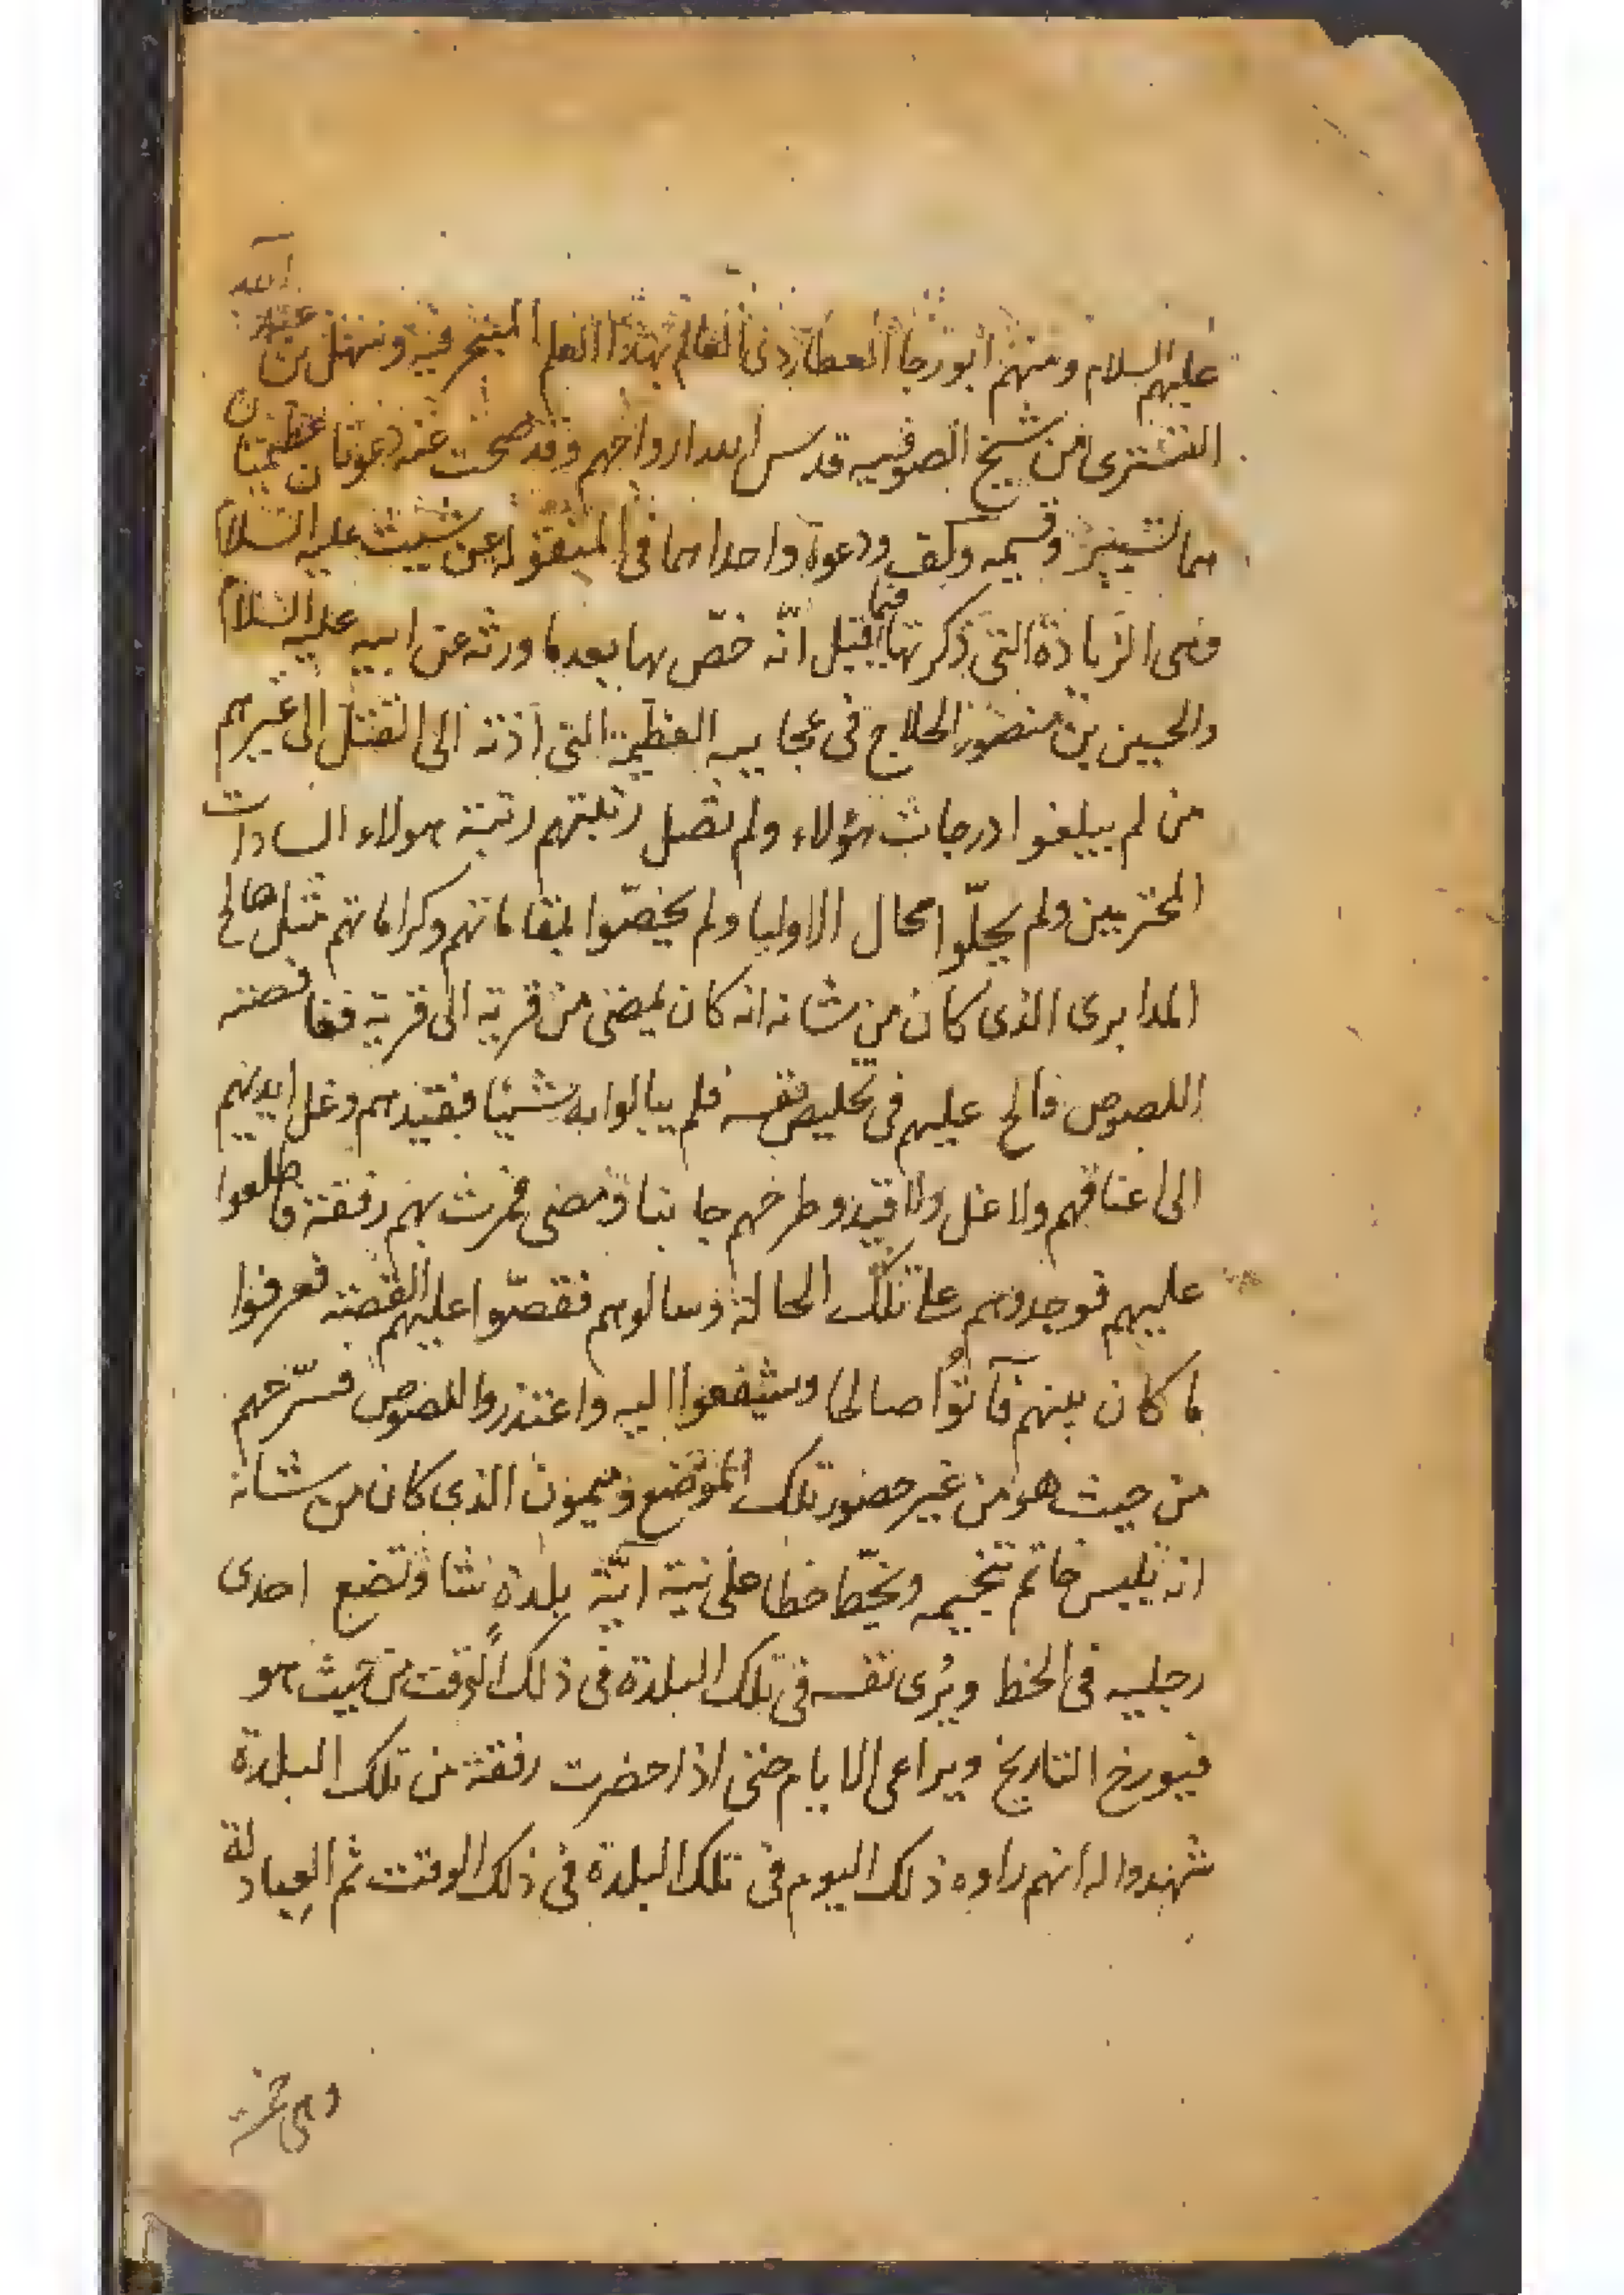 عليهم السلام ومنهم ابو رجا العطاردى العالم بهذا العلم المتبحر فيه وسهل بن عبد الله
التسترى من شيخ الصوفيه قدس الله ارواحهم وقد صحت عنه دعوتان عظيمتان
هما وقسيمه ودعوة واحدا هما فى المنقولة عن شيث عليه السلام
وهى الزيادة التى ذكرتها فيما قيل انّه خصّ بها بعد ما ورثه عن ابيه عليه السلام
والحسين بن منصور الحلاج فى عجايبه العظيمة التى أدّته الى القتل الى غيرهم
من لم يبلغوا درجات هؤلاء ولم تصل رتبتهم رتبة هولاء السادات
ولم يحلّوا محال الاوليا ولم يخصّوا بمقاماتهم وكراماتهم مثل صالح
المدابرى الذى كان من شانه انه كان يمضى من قرية الى قرية فغافصته
اللصوص فالح عليهم فى تخليص نفسه فلم يبالوا به شيئا فقيّدهم وغل ايديهم
الى اعناقهم ولا غل ولا قيد وطرحهم جانبا ومضى فمرت بهم رفقة فاطلعوا
عليهم فوجدوهم على تلك الحالة وسالوهم فقصّوا عليهم القصة فعرفوا
ما كان بينهم فأتوُا صالحا وشفعوا اليه واعتذروا اللصوص فسرّحهم
من حيث هو من غير حضور تلك الموضع وميمون الذى كان من شانه
انه يلبس خاتم تنجيمه ويخطّ خطا على نية ايّة بلدةٍ شا وتضع احدى
رجليه فى الخط ويُرى نفسه فى تلك البلدة فى ذلك الوقت من حيث هو
فيورخ التاريخ ويراعى الايام حتى اذا حضرت رفقة من تلك البلدة
شهدوا له انهم راوه ذلك اليوم فى تلك البلدة فى ذلك الوقت ثم العبادلة